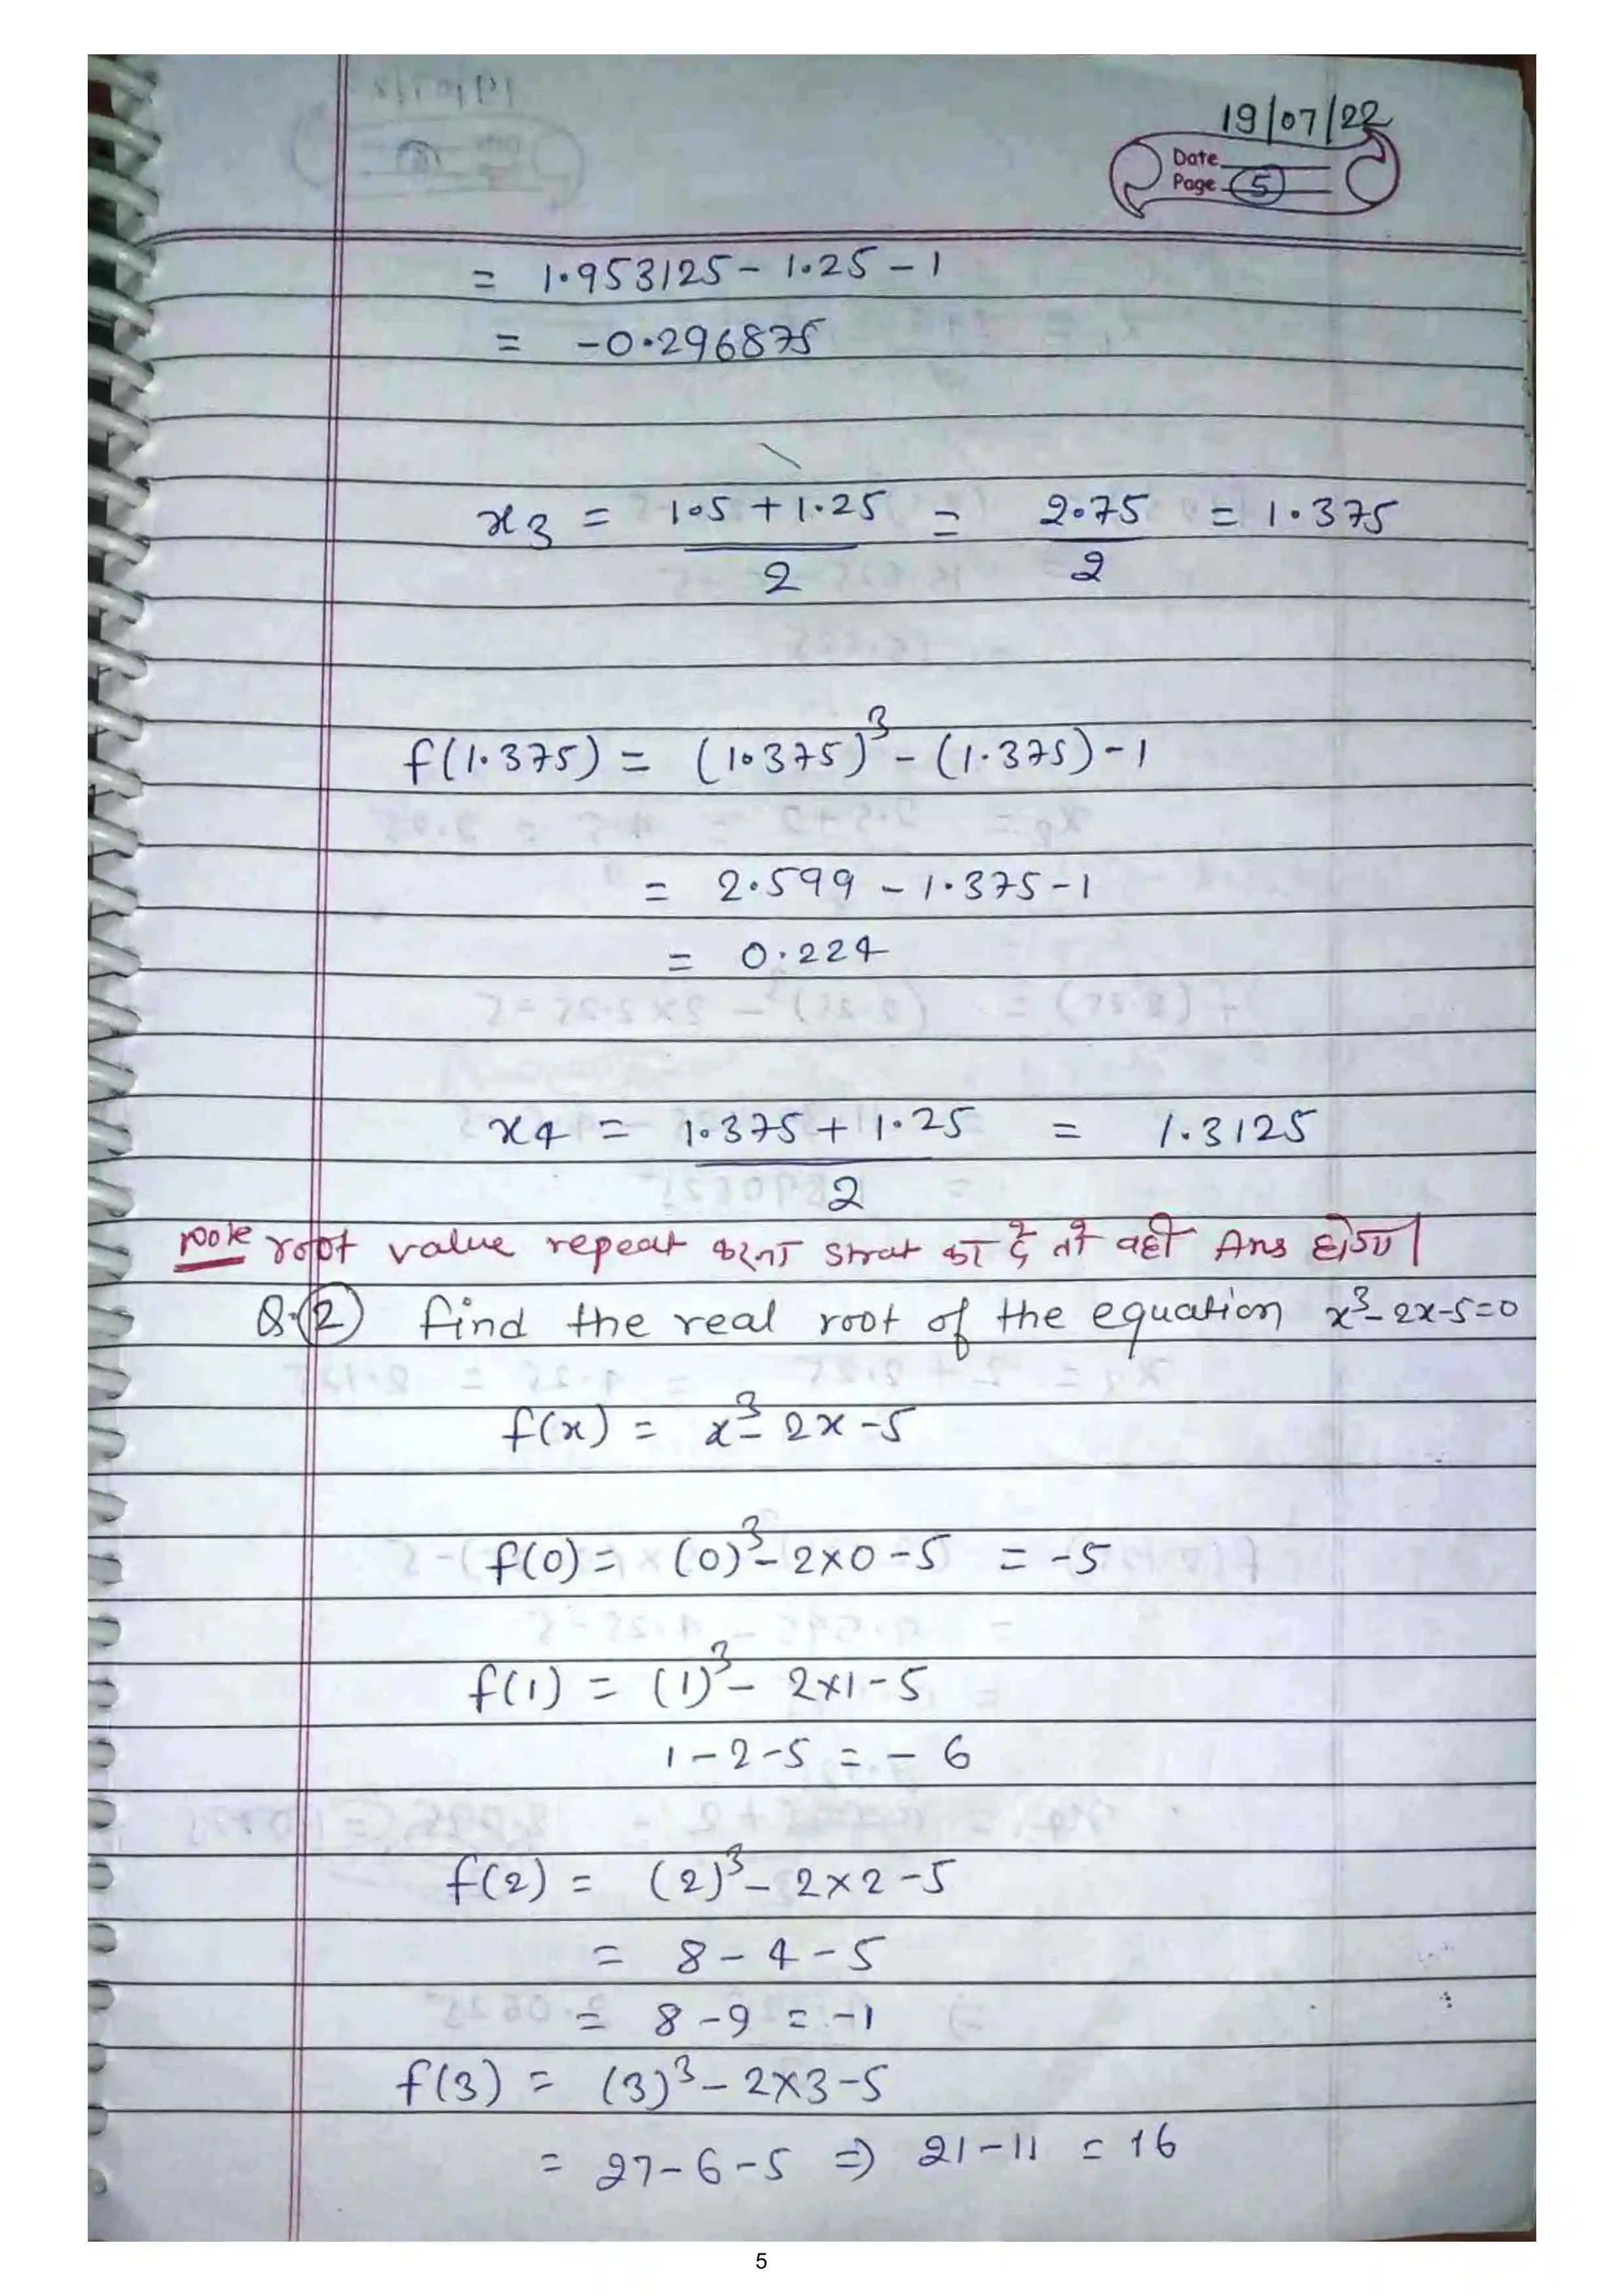 19/07/22
Date
Page 5
= 1.953125 - 1.25 - 1
= -0.296875
x3 = 1.5 + 1.25 / 2 = 2.75 / 2 = 1.375
f(1.375) = (1.375)³ - (1.375) - 1
= 2.599 - 1.375 - 1
= 0.224
x4 = 1.375 + 1.25 / 2 = 1.3125
Note root value repeat करना strat कर दे तो वही Ans होगा।
Q.(2) find the real root of the equation x³ - 2x - 5 = 0
f(x) = x³ - 2x - 5
f(0) = (0)³ - 2×0 - 5 = -5
f(1) = (1)³ - 2×1 - 5
1 - 2 - 5 = - 6
f(2) = (2)³ - 2×2 - 5
= 8 - 4 - 5
= 8 - 9 = -1
f(3) = (3)³ - 2×3 - 5
= 27 - 6 - 5 ⇒ 21 - 11 = 16
5